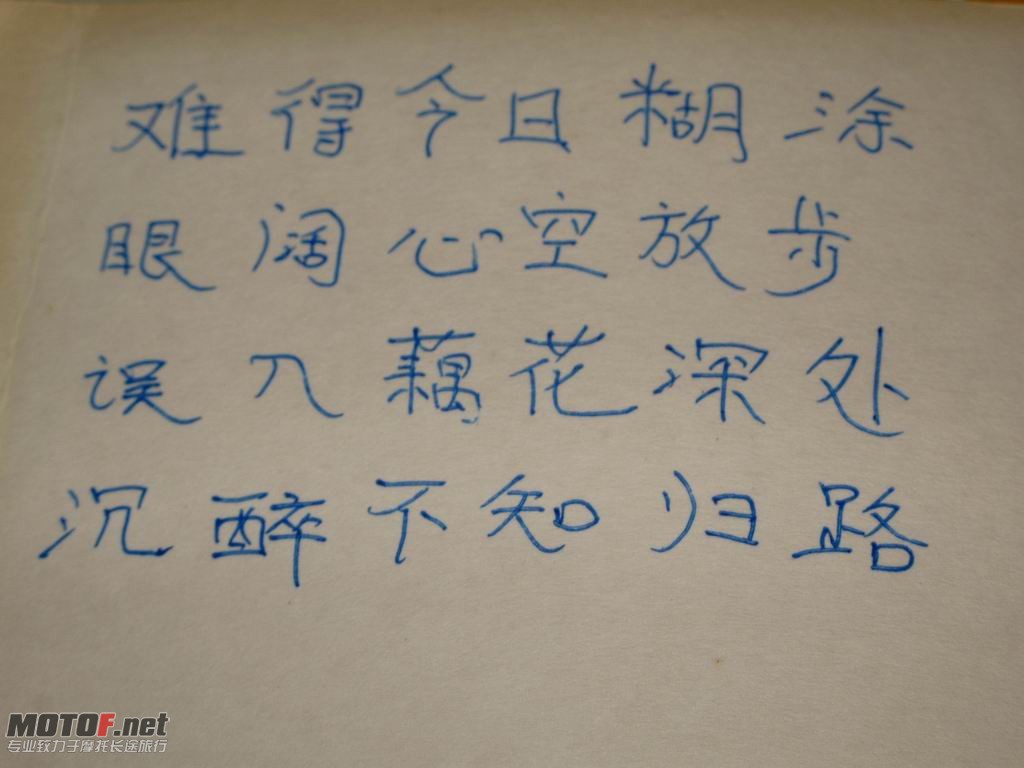 难得今日糊涂
眼阔心空放步
误入藕花深处
沉醉不知归路
MOTOF.net
专业致力于摩托长途旅行